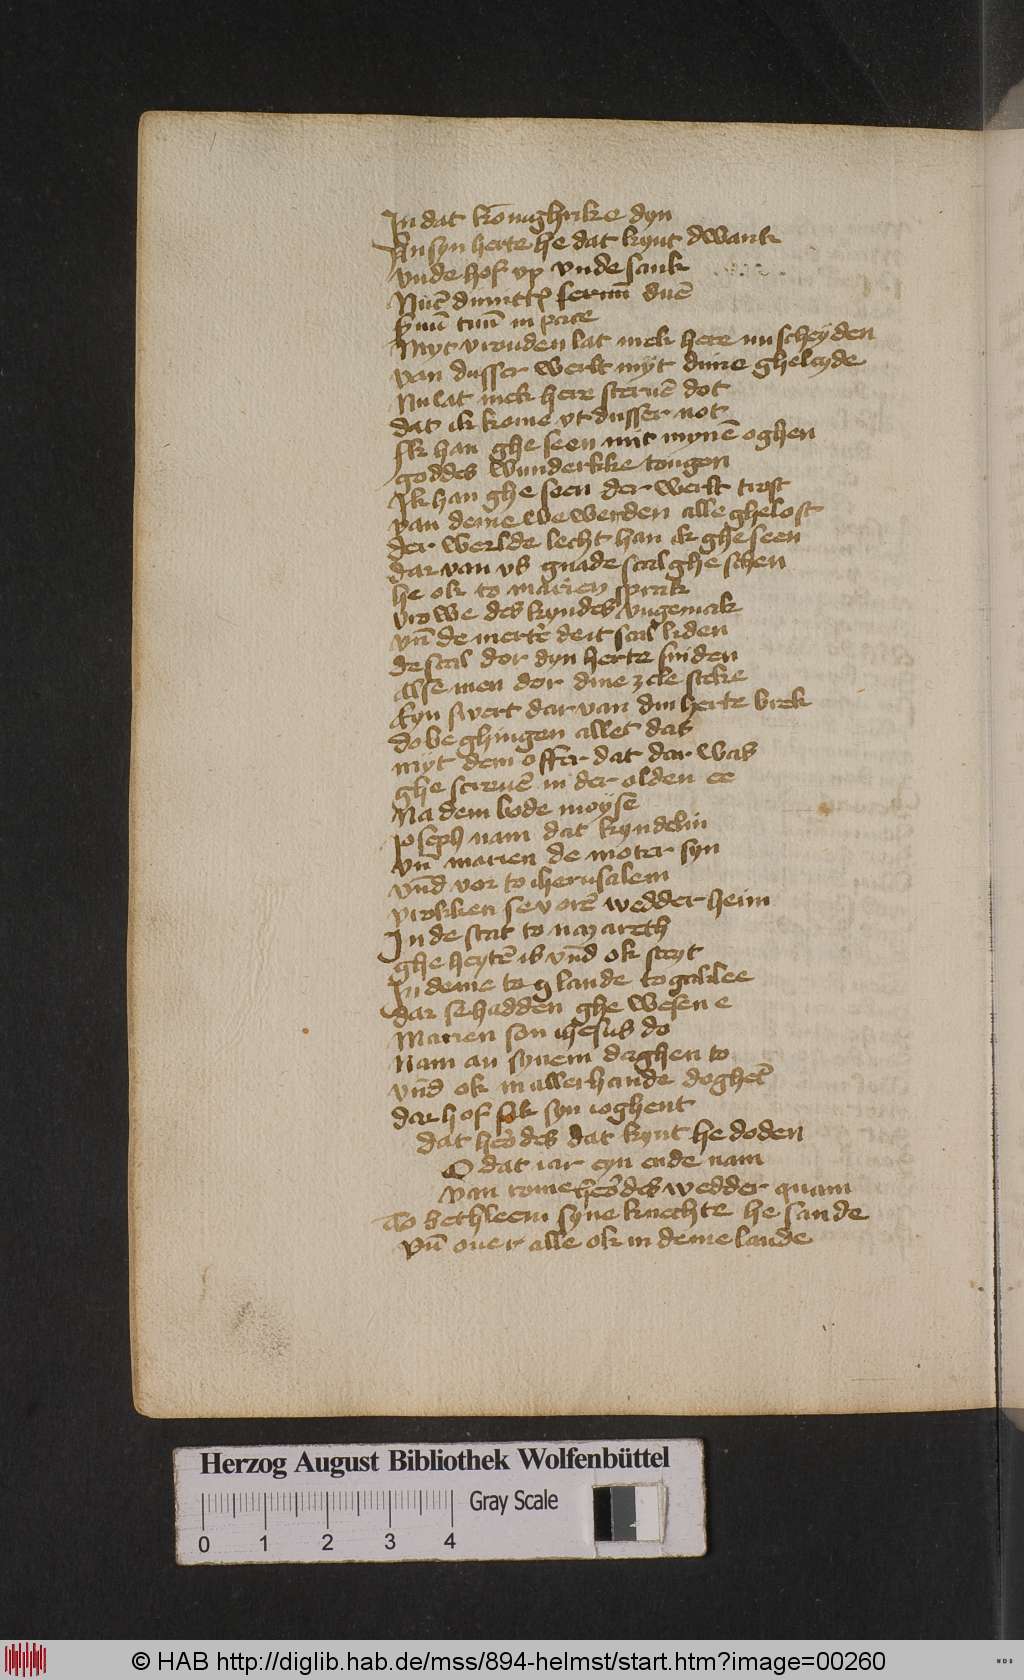 In dat kōnighrike dyn
An syn herte he dat kynt dwank
vnde hof vp vnde sank
Nūc dimittis seruū duē
sm̄ tuū in pace
Myt vrouden lat mek here nu scheyden
van dusser werlt myt dime gheleyde
Nu lat mek here steruē dot
dat ik kome vt dusser not
Ik han ghe seen mit mynē oghen
goddes wunderlike tougen
Ik han ghe seen der werlt trost
van deme we werden alle ghelost
der werlde lecht han ik ghe seen
dar van vs gnade scal ghe schen
he ok to marien sprak
vrowe des kyndes vngemak
vn̄ de mertē deit scal liden
de scal dor dyn herte sniden
Alse men dor dine zele steke
Eyn swert dar van din herte brek
do be ghingen allet dat
myt dem offer dat dar was
ghe screuē in der olden ee
Na dem bode moyse
Joseph nam dat kyndelin
vn̄ marien de moter syn
vnd vor to iherusalem
vrokken se vorē wedder heim
In de stat to nazareth
ghe heytē is vnd ok steyt
In deme to g lande to galilee
dar se hadden ghe wesen e
Marien son ihesus do
Nam an synem daghen to
vnd ok in allerhande doghet
dar hof sik syn ioghent
dat herodes dat kynt he doden
O dat iar eyn ende nam
van rome herodes wedder quam
To bethleem syne knechte he sande
vn̄ ouer alle ok in deme lande
Herzog August Bibliothek Wolfenbüttel
Gray Scale
0 1 2 3 4
© HAB http://diglib.hab.de/mss/894-helmst/start.htm?image=00260